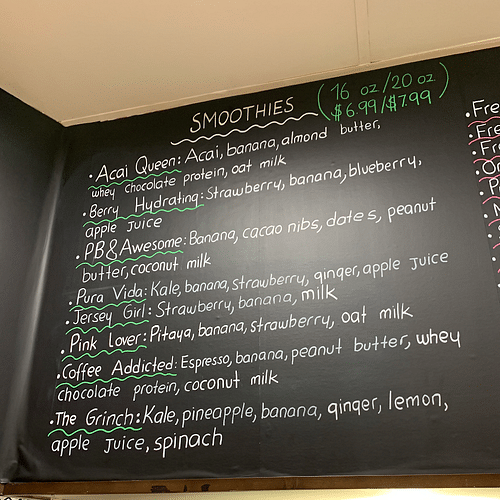 SMOOTHIES (16 oz/20 oz
$6.99/$7.99)
• Acai Queen: Acai, banana, almond butter,
whey chocolate protein, oat milk
• Berry Hydrating: Strawberry, banana, blueberry,
apple juice
• PB & Awesome: Banana, cacao nibs, dates, peanut
butter, coconut milk
• Pura Vida: Kale, banana, strawberry, ginger, apple juice
• Jersey Girl: Strawberry, banana, milk
• Pink Lover: Pitaya, banana, strawberry, oat milk
• Coffee Addicted: Espresso, banana, peanut butter, whey
chocolate protein, coconut milk
• The Grinch: Kale, pineapple, banana, ginger, lemon,
apple juice, spinach
• Fre
• Fre